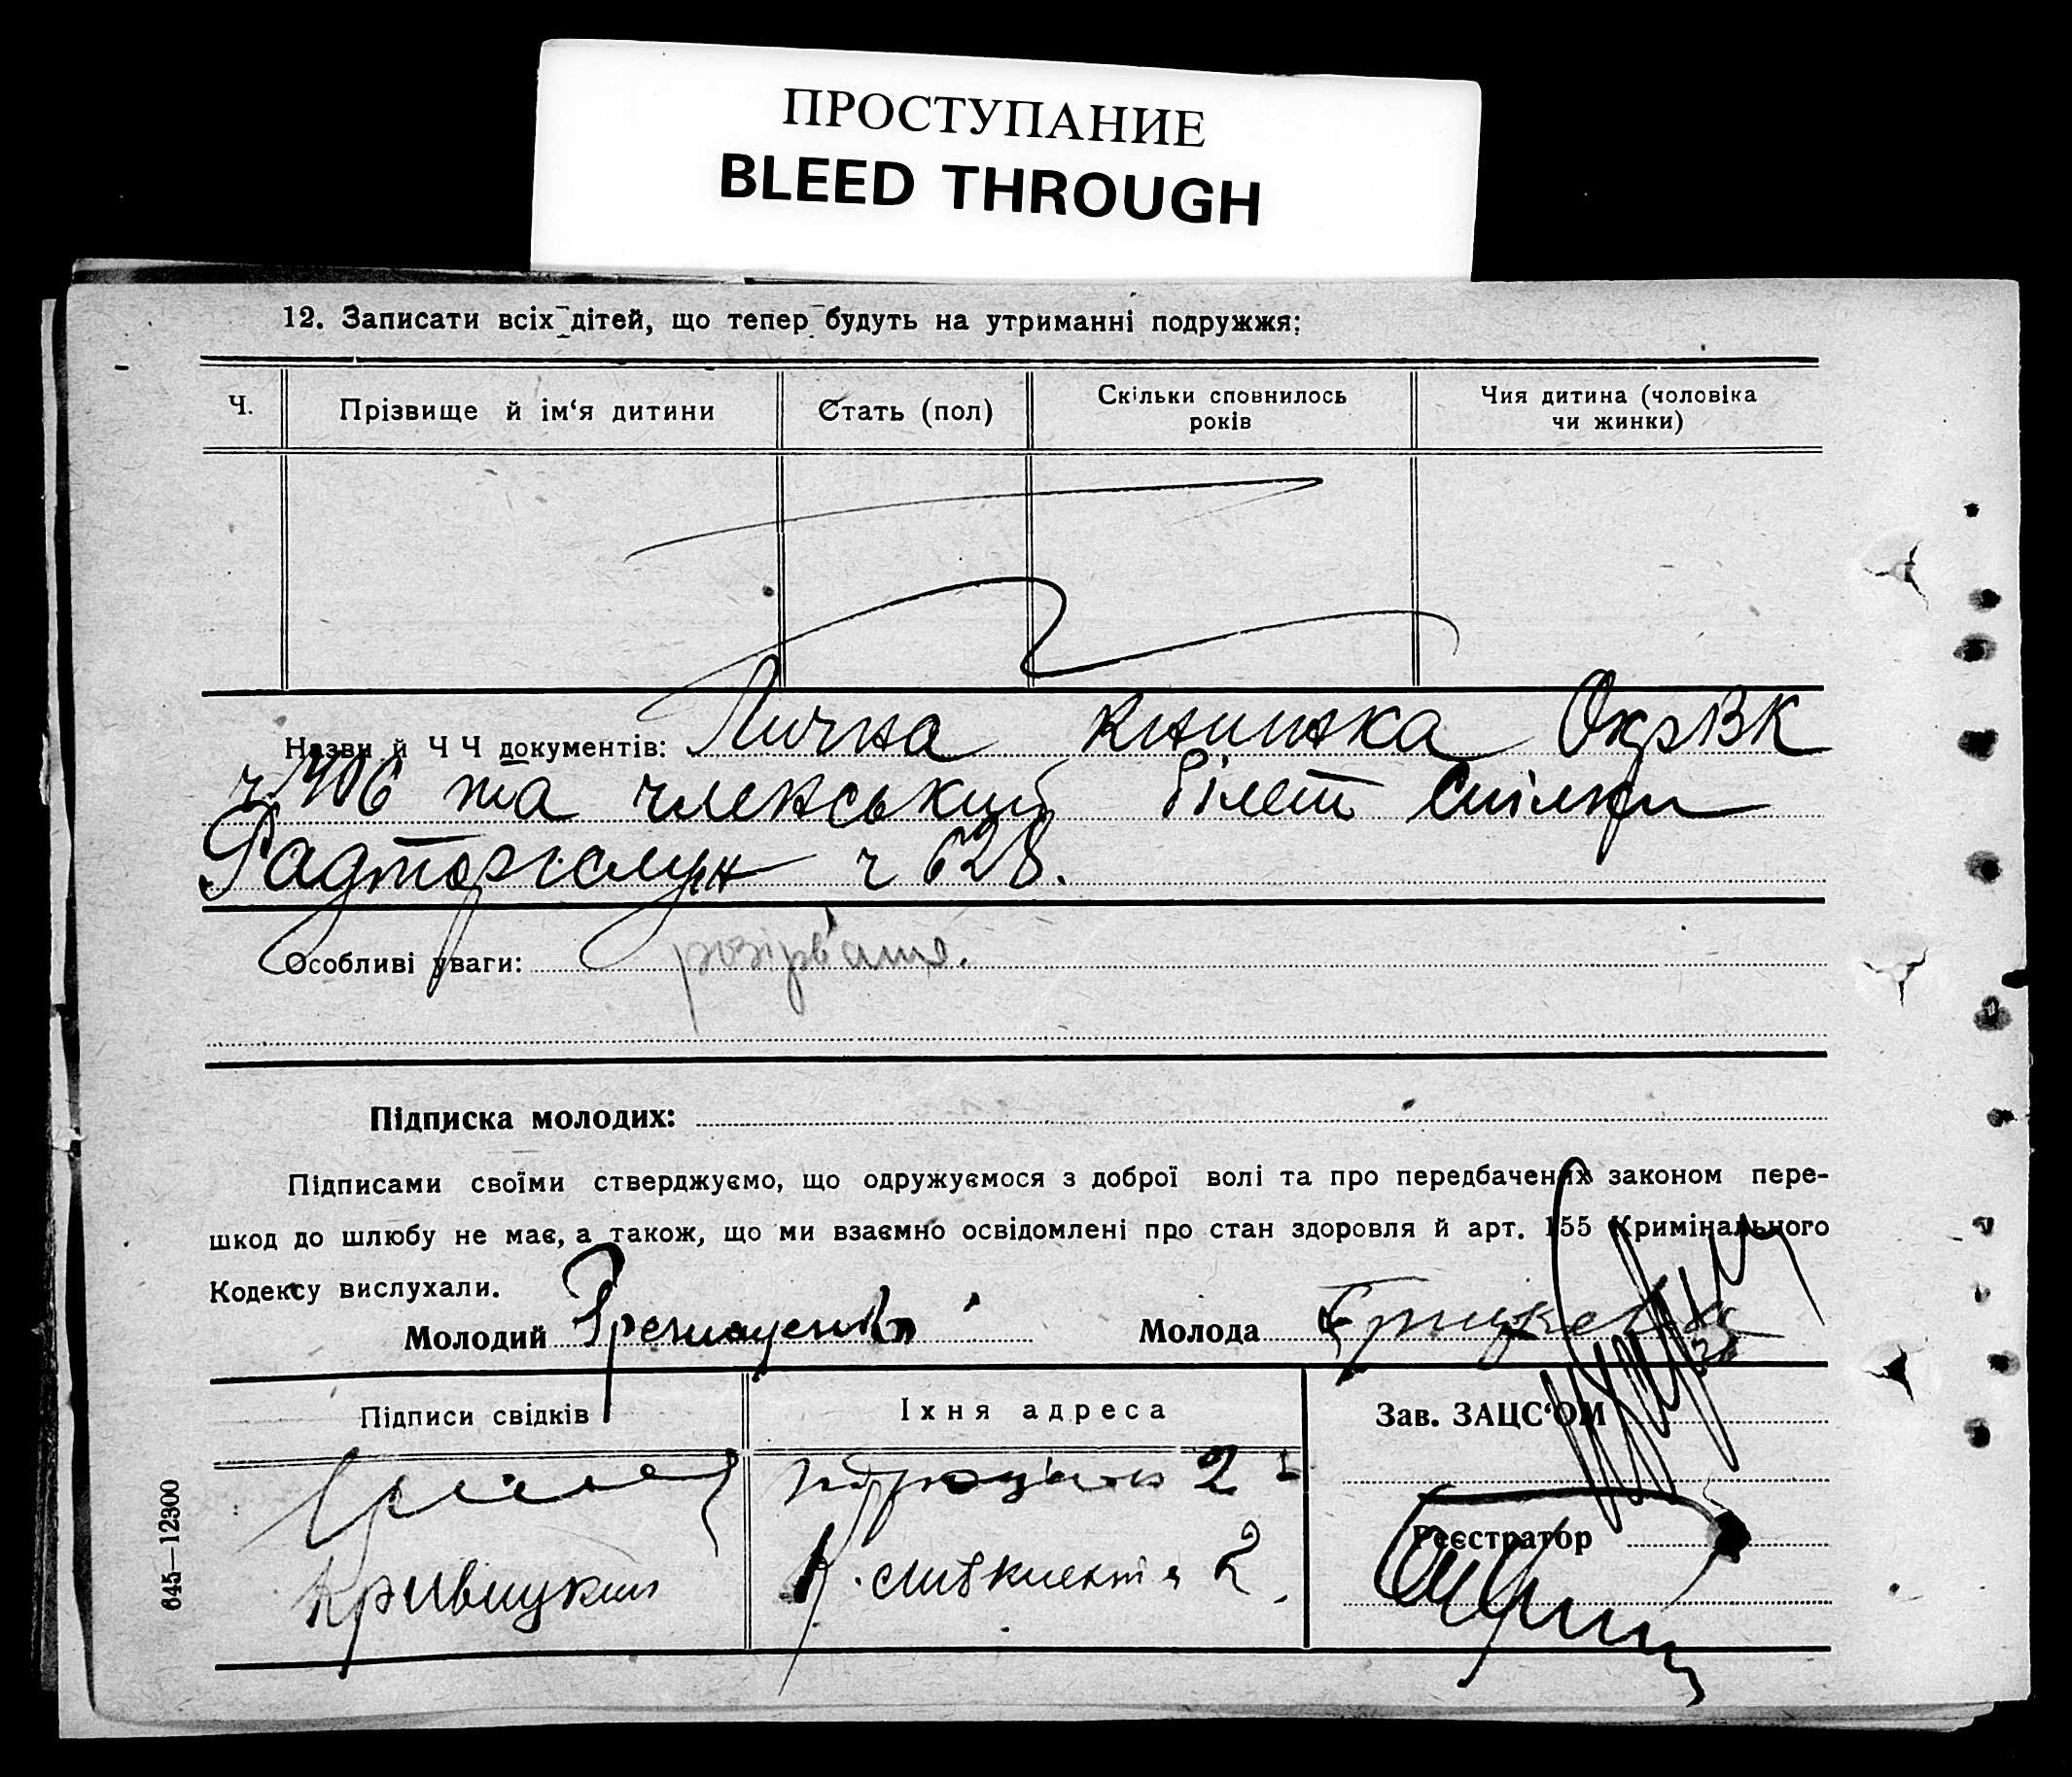 ПРОСТУПАНИЕ
BLEED THROUGH
12. Записати всіх дітей, що тепер будуть на утриманні подружжя:
Ч.
Прізвище й ім‘я дитини
Стать (пол)
Скільки сповнилось
років
Чия дитина (чоловіка
чи жинки)
Назви й Ч Ч документів: Лична книжка ОкрВК
ч 1406 та членський білет спілки
Радторгслуж ч 628.
Особливі уваги: розірвано.
Підписка молодих:
Підписами своїми стверджуємо, що одружуємося з доброї волі та про передбачених законом пере-
шкод до шлюбу не має, а також, що ми взаємно освідомлені про стан здоровля й арт. 155 Кримінального
Кодексу вислухали.
Молодий
Молода
Підписи свідків
Їхня адреса
Зав. ЗАЦС‘ОМ
2
Реєстратор
Кривицкий
2
645—12300